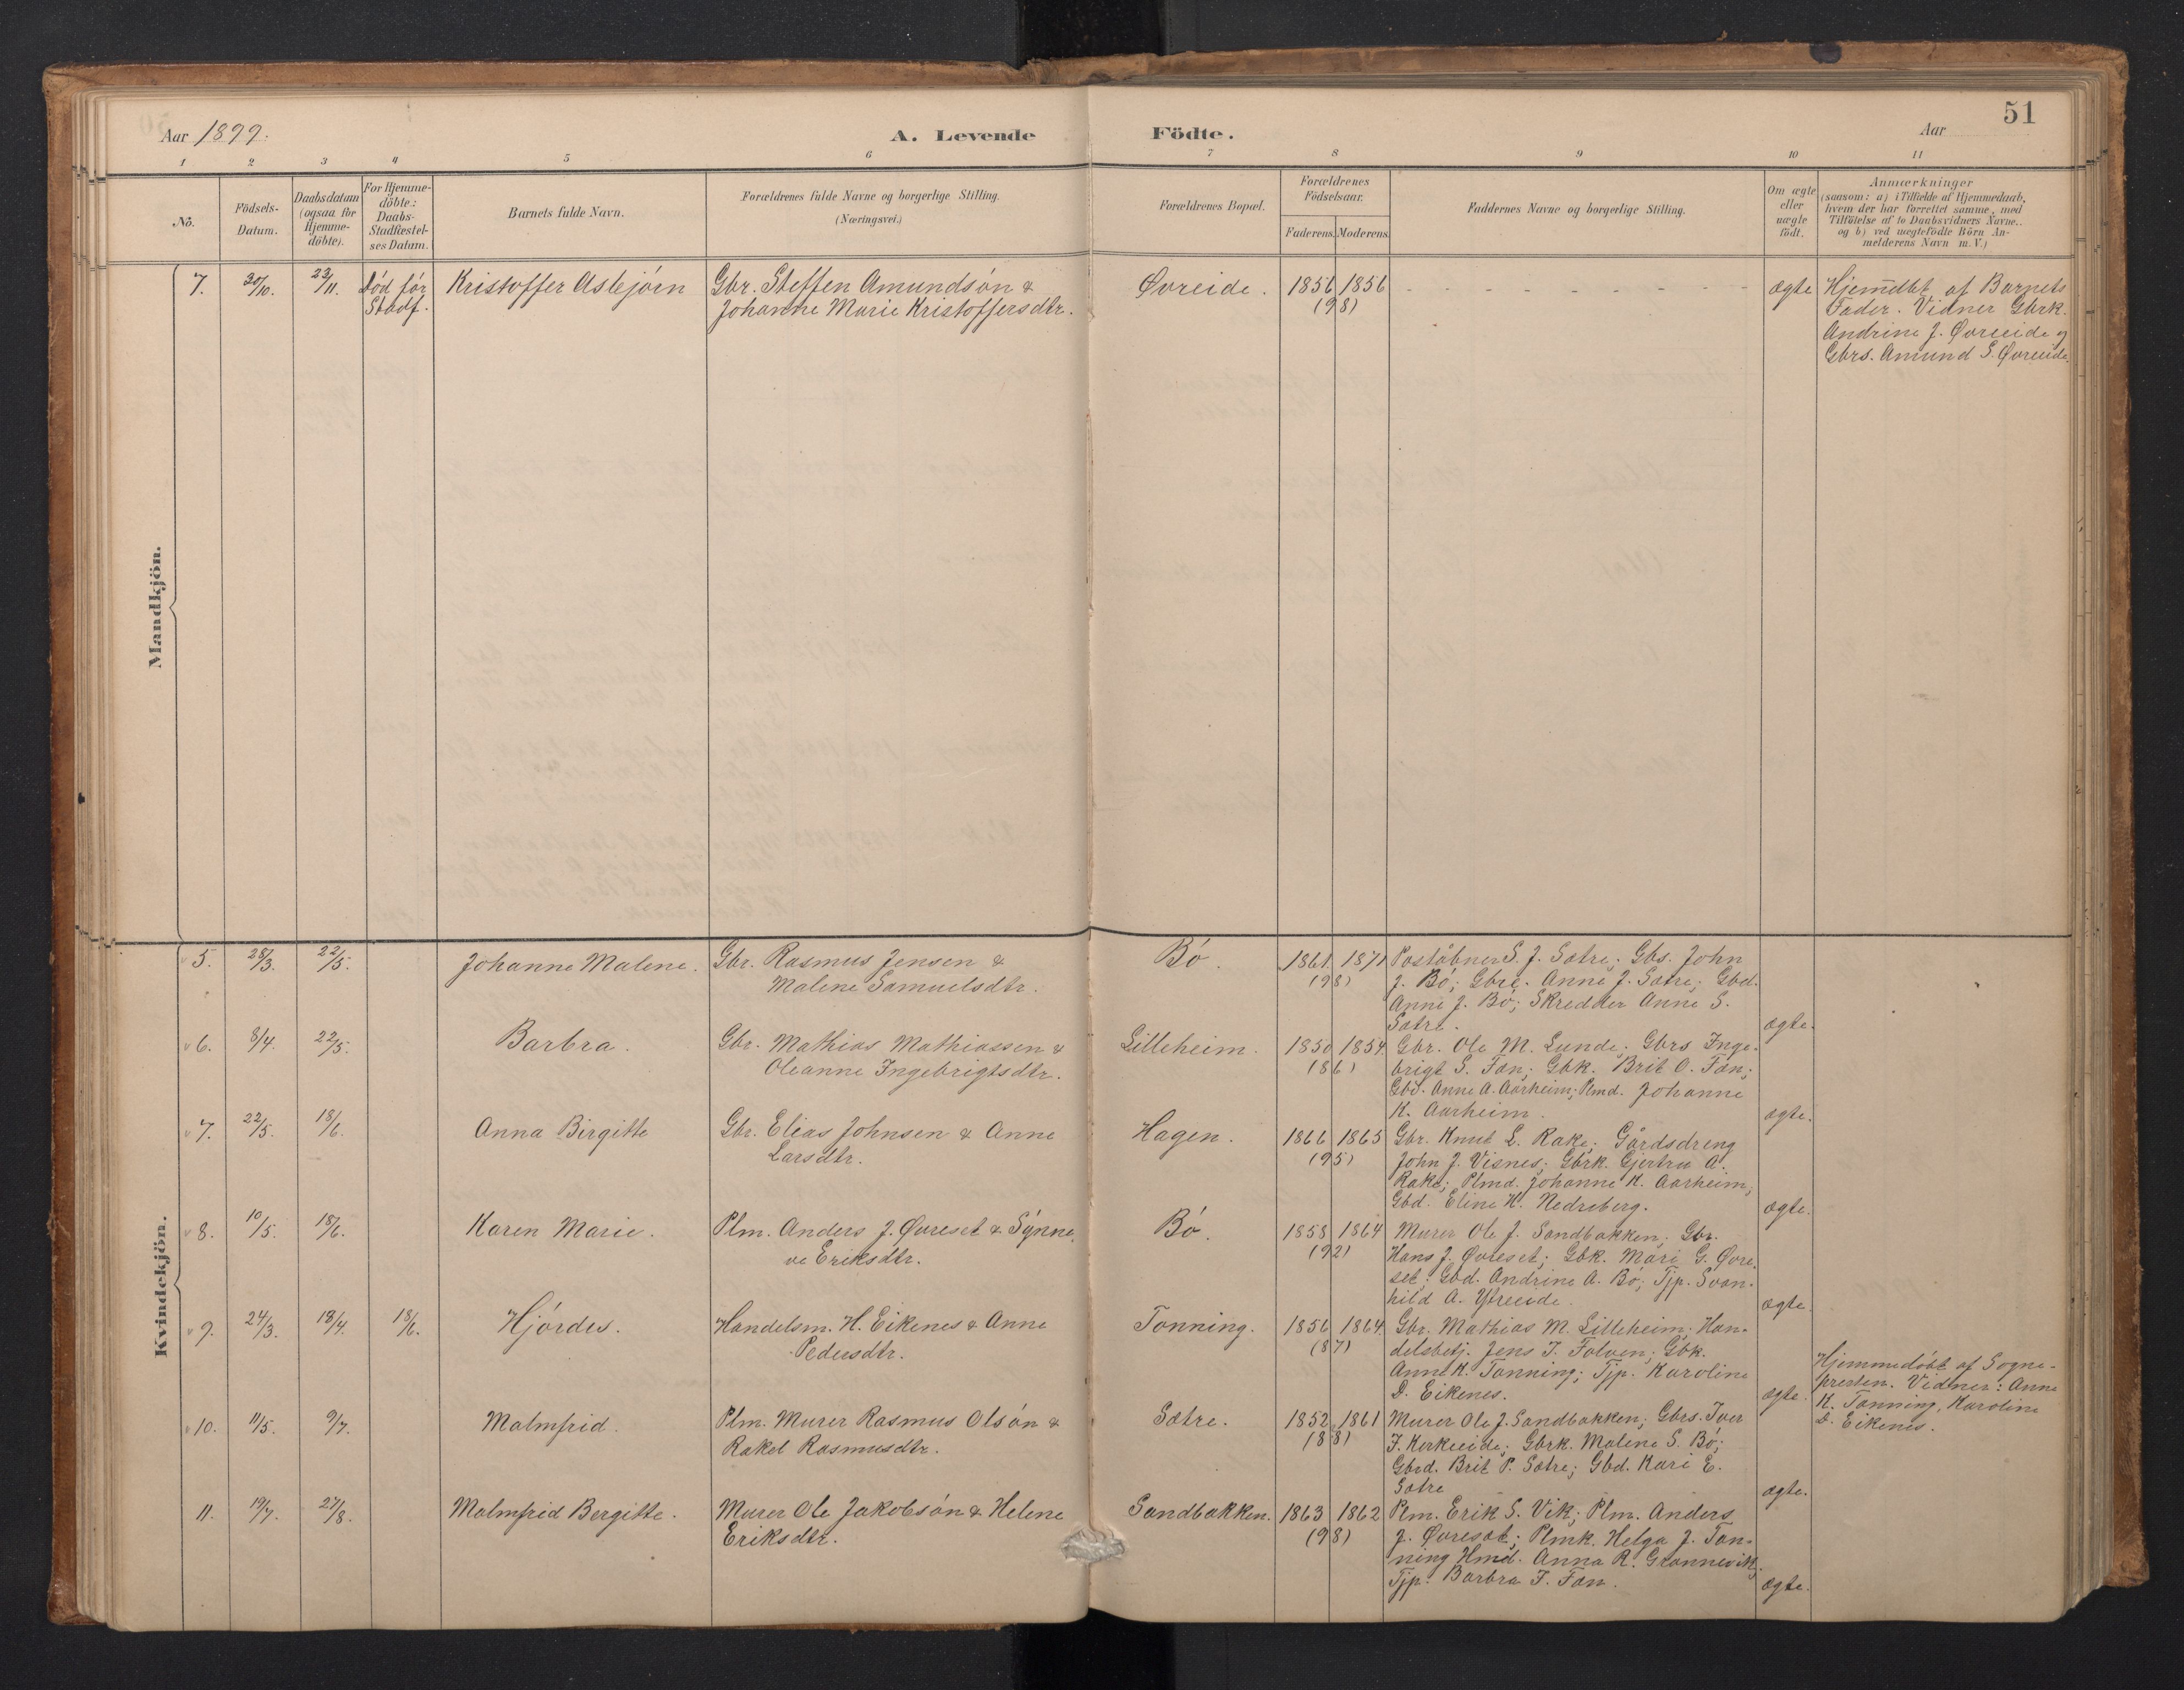 51
Aar 1899.
A. Levende Födte.
Aar
1 2 3 4 5 6 7 8 9 10 11
No.
Födsels-Datum.
Daabsdatum (ogsaa for Hjemme-döbte).
For Hjemme-döbte: Daabs-Stadfæstel-ses Datum.
Barnets fulde Navn.
Forældrenes fulde Navne og borgerlige Stilling.
(Næringsvei.)
Forældrenes Bopæl.
Forældrenes Födselsaar.
Faderens. Moderens.
Faddernes Navne og borgerlige Stilling.
Om ægte eller uægte födt.
Anmærkninger
(saasom: a) i Tilfælde af Hjemmedaab,
hvem der har forrettet samme, med
Tilföielse af to Daabsvidners Navne..
og b) ved uægtefödte Börn An-
melderens Navn m. V.)
Mandkjön.
7. 30/10. 23/11. Död før Kristoffer Asbjørn Gbr. Steffen Amundsøn & Øvreide. 1856 1856 ægte Hjemdbt af Barnets
Stadf. Johanne Marie Kristoffersdtr. (98) Fader. Vidner Gbrk.
Andrine J. Øvreide og
Gbrs. Amund S. Øvreide.
Kvindekjön.
5. 28/3. 22/5. Johanne Malene. Gbr. Rasmus Jensen & Bø. 1861 1871 Poståbner S. J. Sætre; Gbs. John
Malene Samuelsdtr. (98) J. Bø; Gbre. Anne J. Sætre; Gbd.
Anne J. Bø; Skrædder Anne S.
Sætre. ægte.
6. 8/4. 22/5. Barbra. Gbr. Mathias Mathiassen & Lilleheim. 1850 1854 Gbr. Ole M. Lunde; Gbrs Inge-
Oleanne Ingebrigtsdtr. (86) brigt S. Tan; Gbk. Brit O. Tan;
Gbd. Anne A. Aarheim; Plmd. Johanne
K. Aarheim. ægte.
7. 22/5. 18/6. Anna Birgitte Gbr. Elias Johnsen & Anne Hagen. 1866 1865 Gbr. Knut L. Rake; Gårdsdreng
Larsdtr. (95) John J. Visnes; Gbrk. Gjertru A.
Rake; Plmd. Johanne K. Aarheim;
Gbd. Eline H. Nedreberg. ægte.
8. 10/5. 18/6. Karen Marie. Plm. Anders J. Øvreset & Synne Bø. 1858 1864 Murer Ole J. Sandbakken; Gbr.
ve Eriksdtr. (92) Hans J. Øvreset; Gbk. Mari G. Øvre-
set; Gbd. Andrine A. Bø; Tjp. Svan-
hild A. Ytreeide. ægte
9. 24/3. 18/4. 18/6. Hjørdes. Handelsm. H. Eikenes & Anne Tonning. 1856 1864 Gbr. Mathias M. Lilleheim; Han-
Pedersdtr. (87) delsbetj. Jens T. Folven; Gbk.
Anne K. Tonning; Tjp. Karoline
D. Eikenes. ægte.
Hjemmedøbt af Sogne-
presten. Vidner: Anne
K. Tonning, Karoline
D. Eikenes.
10. 11/5. 9/7. Malmfrid. Plm. Murer Rasmus Olsøn & Sætre. 1852 1861 Murer Ole J. Sandbakken; Gbrs. Iver
Rakel Rasmusdtr. (88) J. Kirkeeide; Gbrk. Malene S. Bø;
Gbrd. Brit P. Sætre; Gbd. Kari E.
Sætre ægte.
11. 19/7. 27/8. Malmfrid Bergitte. Murer Ole Jakobsøn & Helene Sandbakken. 1863 1862 Plm. Erik S. Vik; Plm. Anders
Eriksdtr. (98) J. Øvreset; Plmk. Helga J. Ton-
ning Hmd. Anna R. Grannevik;
Tjp. Barbra J. Tan. ægte.